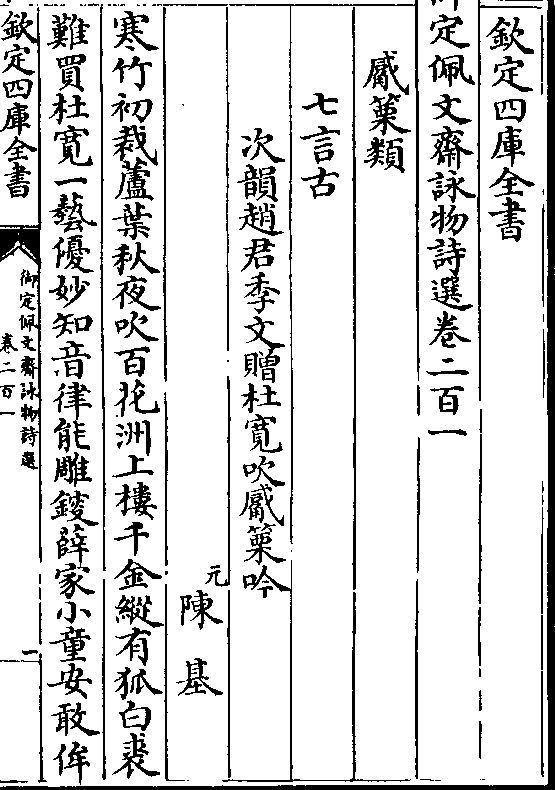 欽定四庫全書
御定佩文齋詠物詩選卷二百一
觱篥類
七言古
次韻趙君季文贈杜寛吹觱篥吟
元陳基
寒竹初裁蘆葉秋夜吹百花洲上樓千金縱有狐白裘
難買杜寛一藝優妙知音律能雕鎪薛家小童安敢侔
欽定四庫全書
御定佩文齋詠物詩選
卷二百一
一